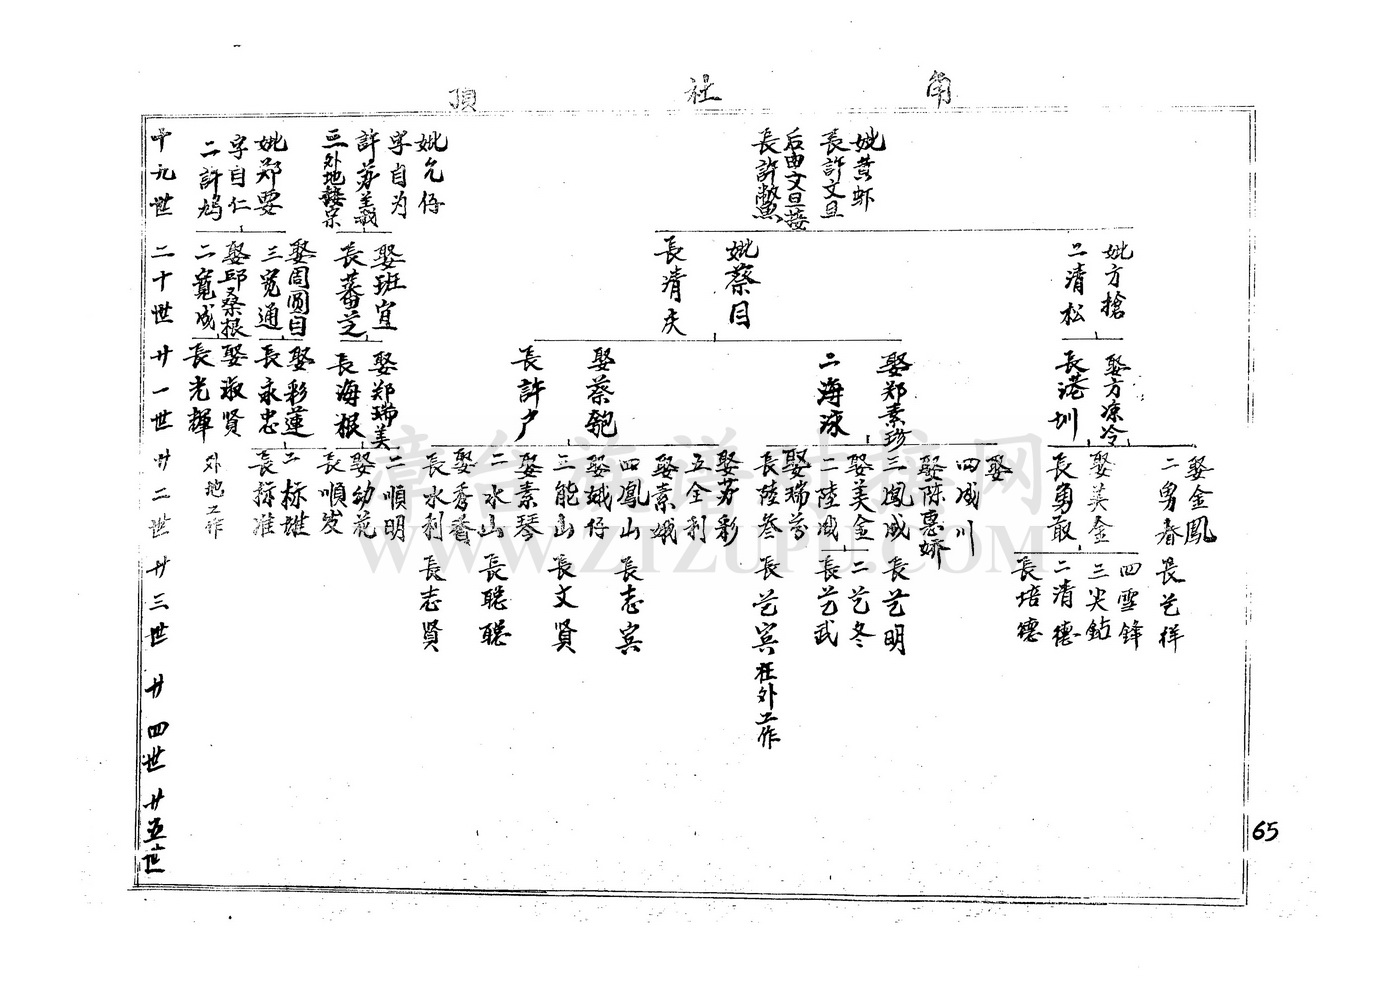 角 社 頂
妣黄虾
長許文旦
后由文旦接
長許鱉
妣允俤
字自为
許芳美
三外地接宗
妣郑要
字自仁
二許鸠
十九世
妣方搶
二清松
妣蔡目
長清庆
娶班宜
長蕃芝
娶周圆自
三寬通
娶邱桑根
二寬成
二十世
娶方凉冷
長港圳
娶郑素珍
二海泳
娶蔡匏
長許户
娶郑瑞美
長海根
娶彩蓮
長永忠
娶淑贤
長光輝
廿一世
娶金鳳
二勇春
娶美金
長勇敢
娶
四成川
娶陈惠娇
三鳳成
娶美金
二陸成
娶瑞芬
長陸叁
娶芬彩
五全利
娶素娥
四鳳山
娶娥仔
三能山
娶素琴
二水山
娶秀香
長水利
二順明
娶幼花
長順发
二标雄
長标准
外地工作
廿二世
長艺样
四雪鋒
三尖鉆
二清德
長培德
長艺明
二艺冬
長艺武
長艺宾在外工作
長志宾
長文贤
長聪聪
長志贤
廿三世
廿四世
廿五世
65
章台族谱对接网
WWW.ZTZUPU.COM